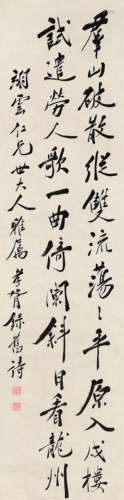 群山破散縱雙流蕩〻平原入戍樓
試遣勞人歌一曲倚闌斜日看龍州
翊雲仁兄世大人雅屬孝胥錄舊詩